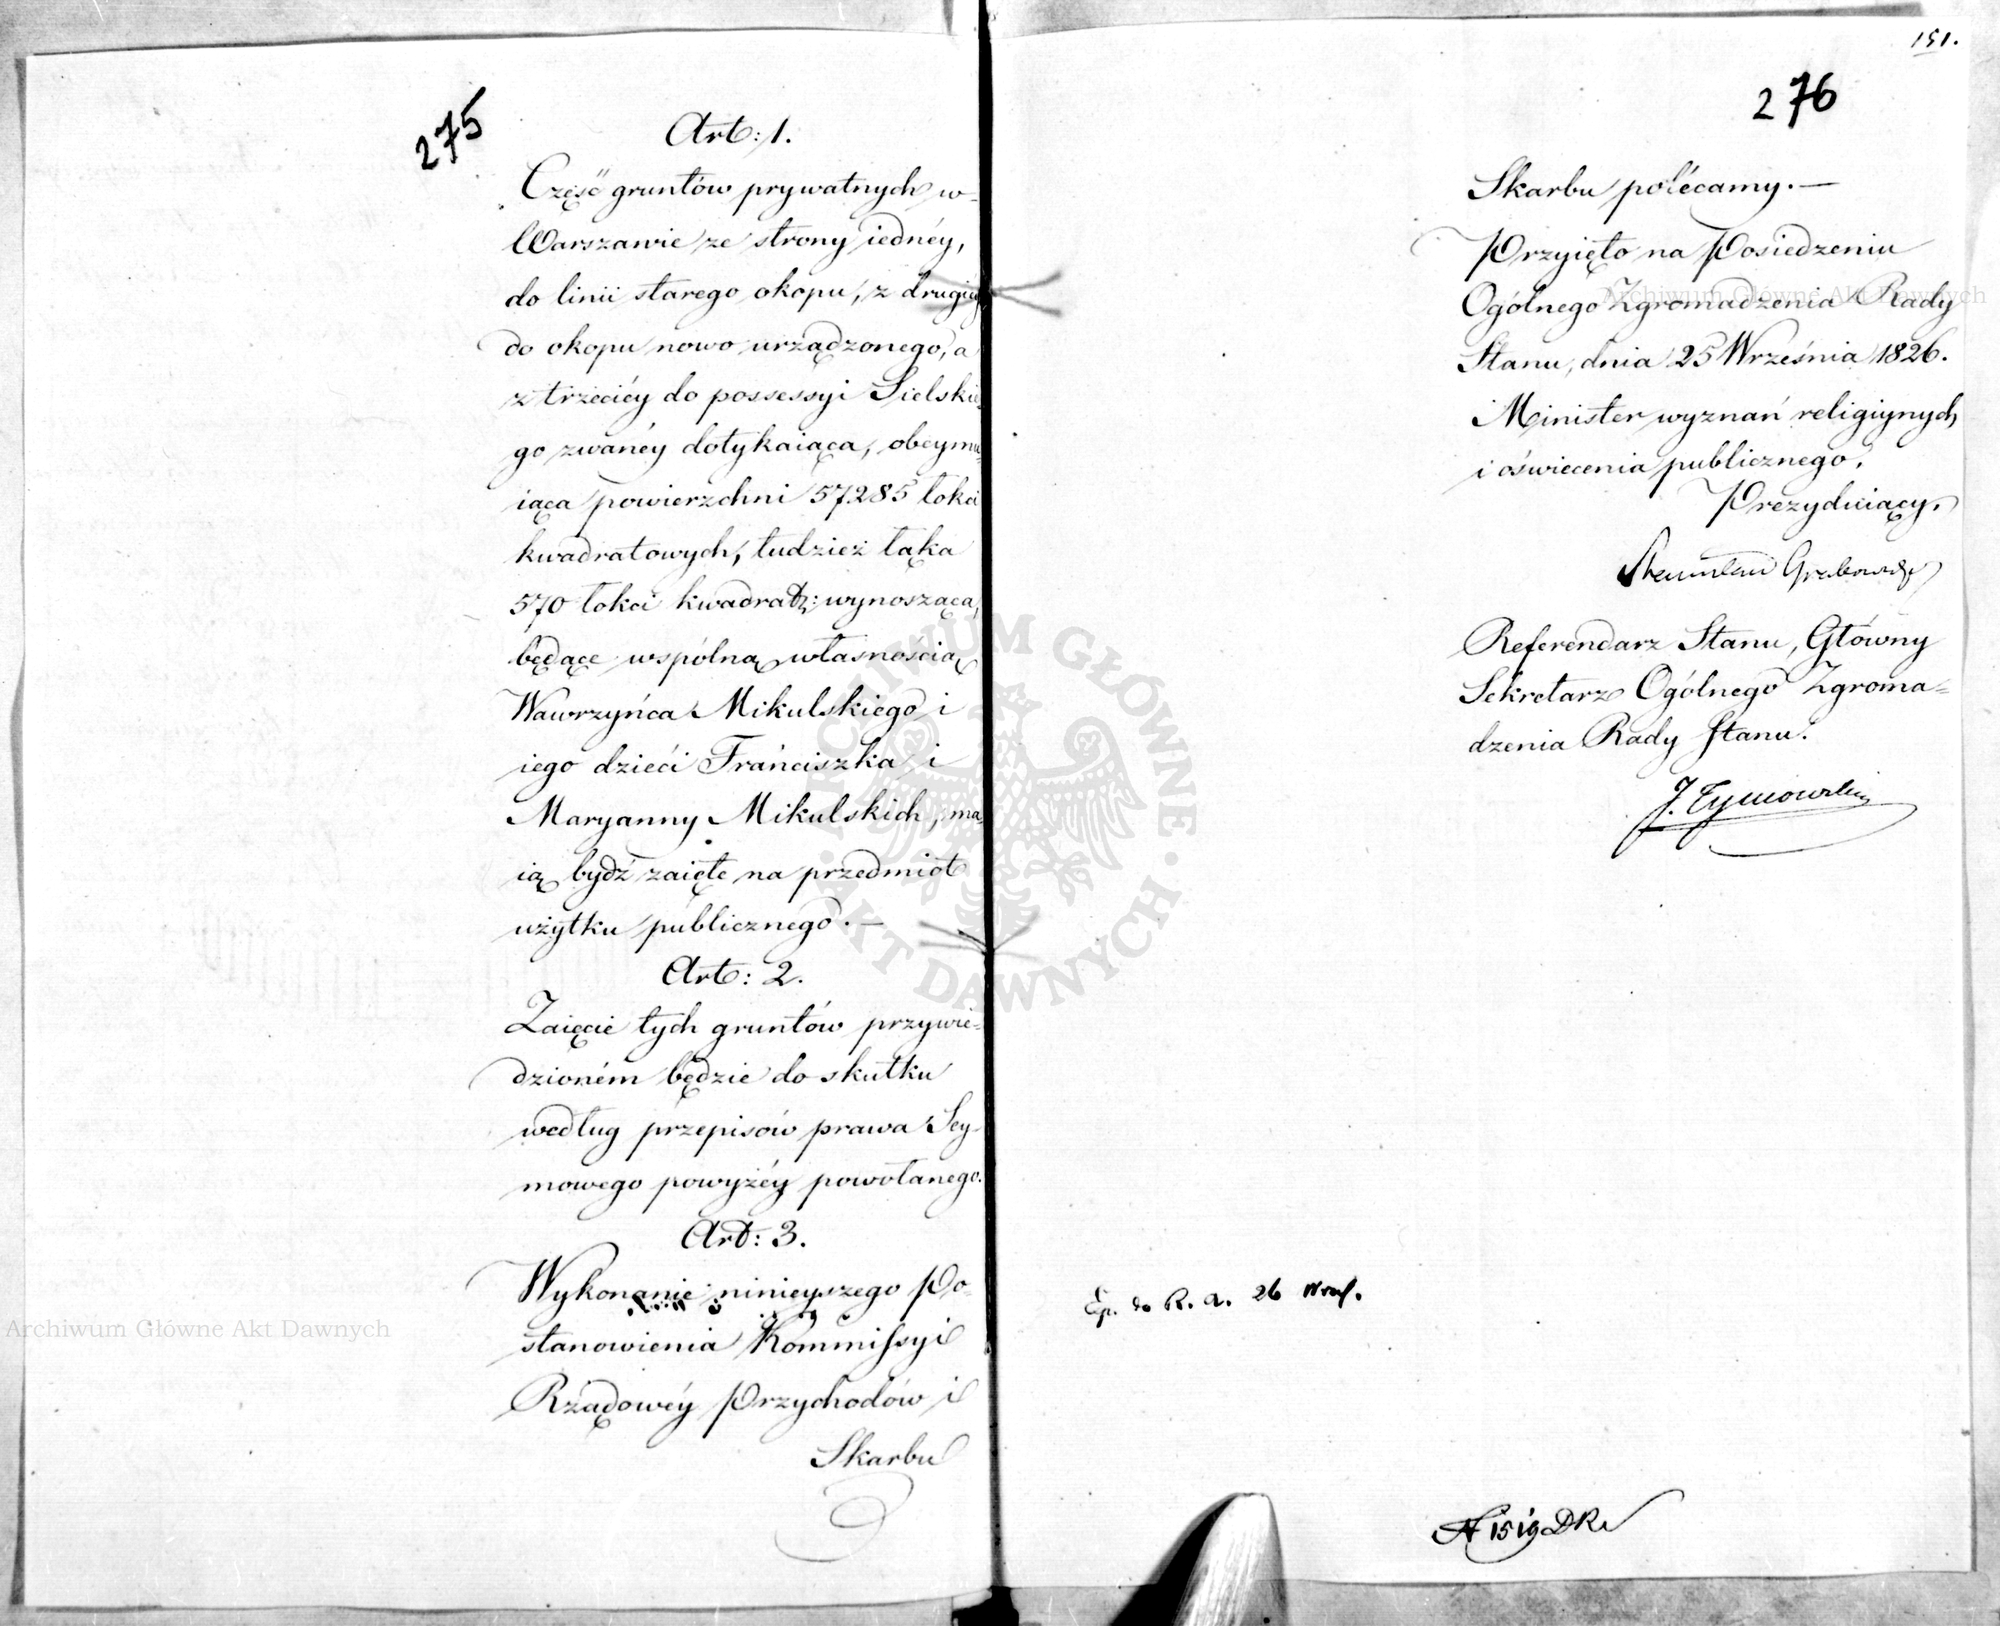 275
Art: 1.
Część gruntów prywatnych w
Warszawie ze strony iednéy,
do linii starego okopu, z drugiéy
do okopu nowo urządzonego, a
z trzeciéy do possessyi Sielskie
go zwanéy dotykaiąca, obeymu=
iąca powierzchni 57285 łokci
kwadratowych, tudzież łąka
570 łokci kwadrat: wynosząca,
będące wspólną własnością
Wawrzyńca Mikulskiego i
iego dzieci Franciszka i
Maryanny Mikulskich, ma=
ią bydź zaięte na przedmiot
użytku publicznego. —
Art: 2.
Zaięcie tych gruntów przywie=
dzioném będzie do skutku
według przepisów prawa Sey=
mowego powyżéy powołanego.
Art: 3.
Wykonanie ninieyszego Po=
stanowienia Kommissyi
Rządowéy Przychodów i
Skarbu
151.
276
Skarbu polécamy. —
Przyięto na Posiedzeniu
Ogólnego Zgromadzenia Rady
Stanu, dnia 25 Września 1826.
Minister wyznań religiynych
i oświecenia publicznego,
Prezyduiący,
Stanisław Grabowski
Referendarz Stanu, Główny
Sekretarz Ogólnego Zgroma=
dzenia Rady Stanu.
J. Tymowski
Ep. do R. A. 26 Wrześ.
N 1519 DR
ARCHIWUM GŁÓWNE AKT DAWNYCH
Archiwum Główne Akt Dawnych
Archiwum Główne Akt Dawnych